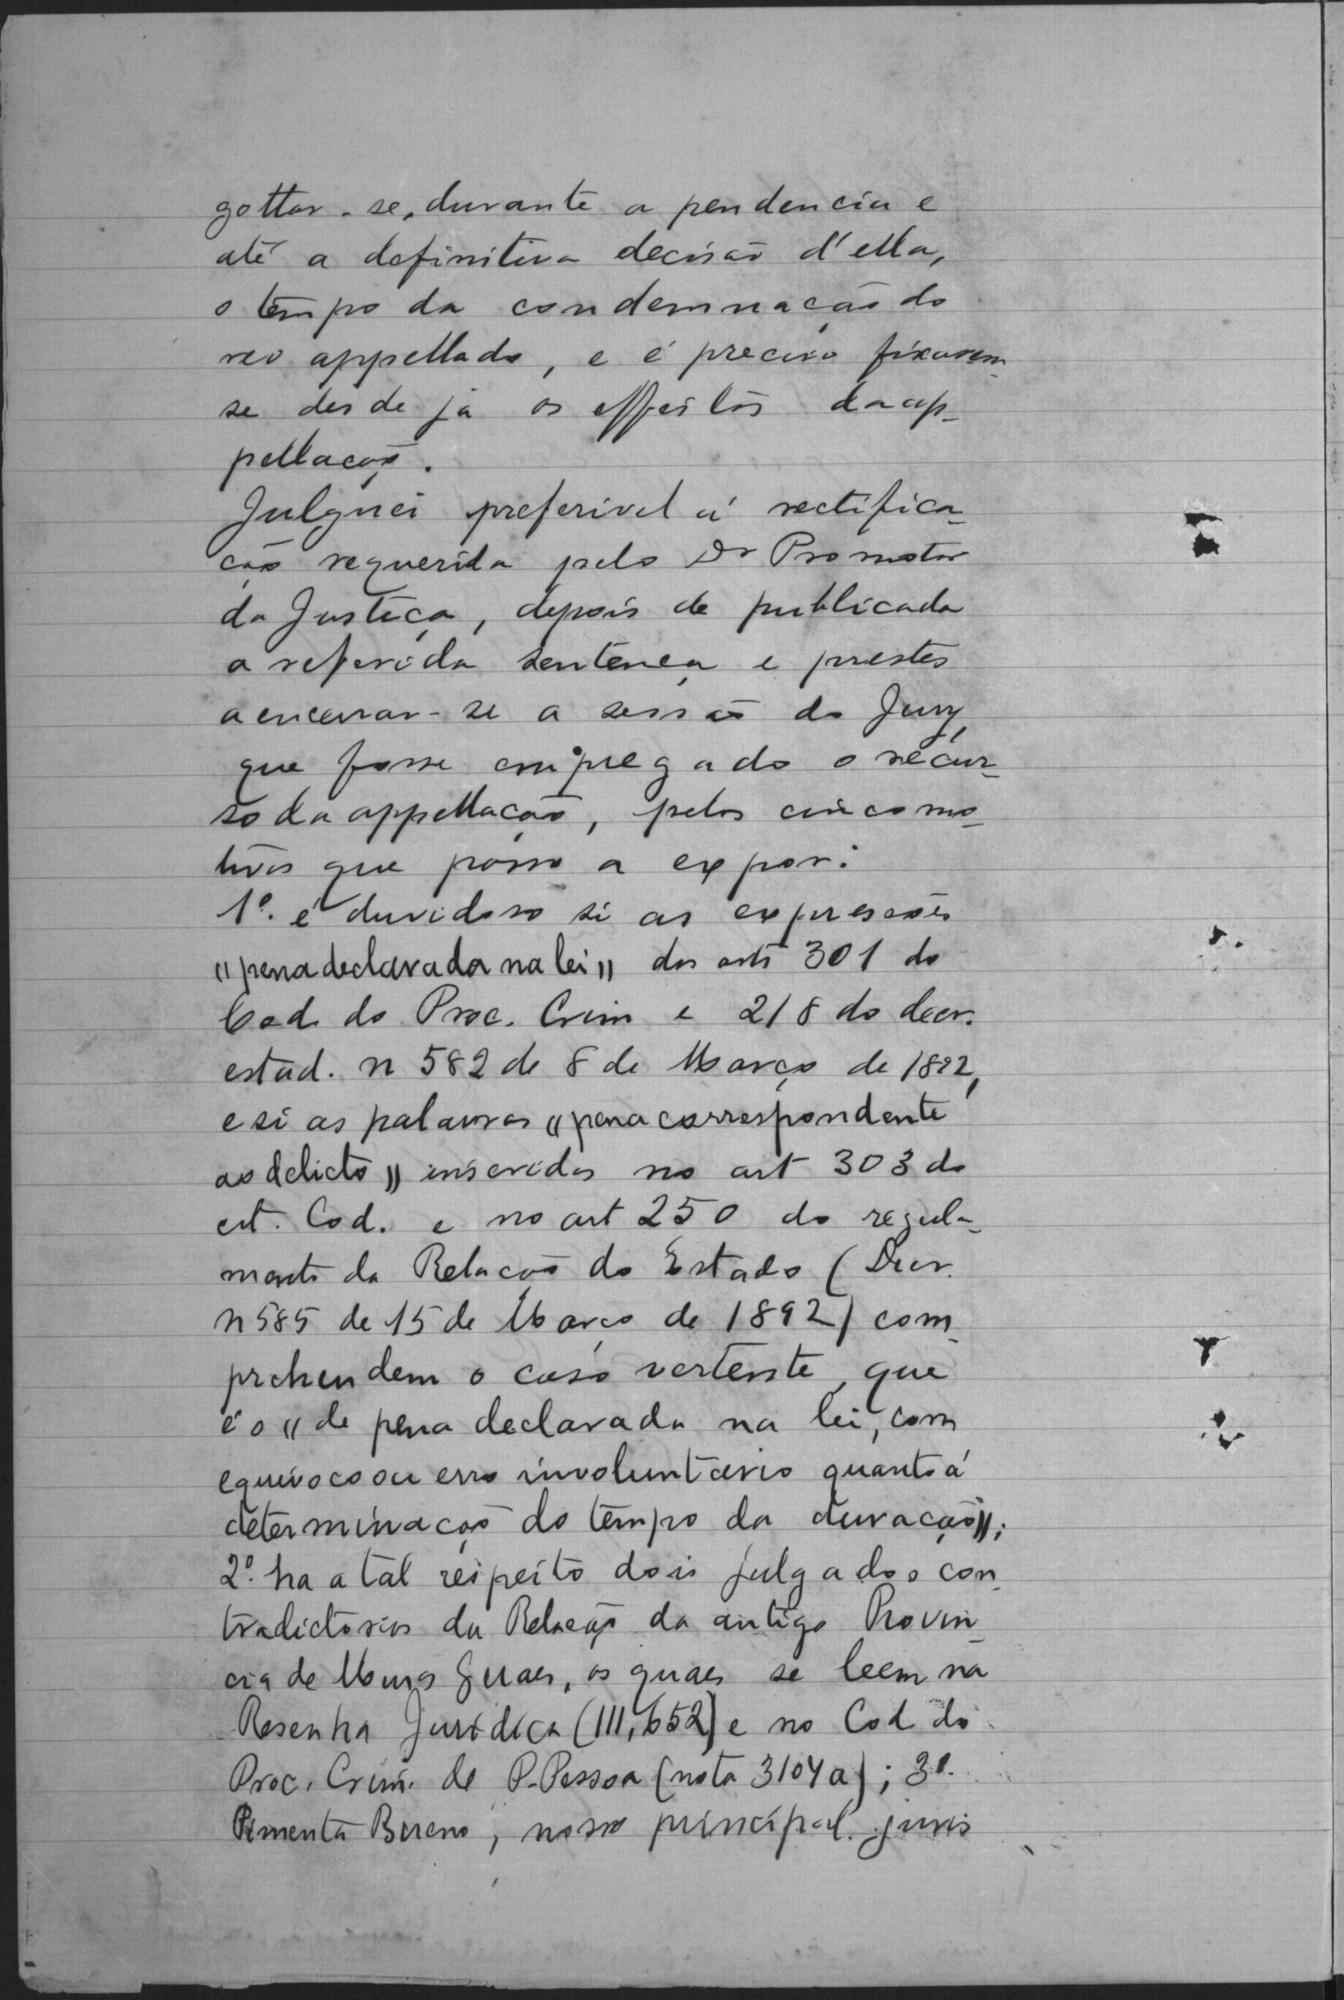 gottar-se, durante a pendencia e
até a definitiva decisão d'ella,
o tempo da condemnação do
reo appellado, e é preciso fixarem-
se desde já os effeitos da ap-
pellação.
Julguei preferivel á rectifica-
ção requerida pelo Dr Promotor
da Justiça, depois de publicada
a referida sentença e prestes
a encerrar-se a sessão do Jury,
que fosse empregado o recur-
so da appellação, pelos cinco mo-
tivos que passo a expor:
1º. é duvidoso si as expressões
"pena declarada na lei" dos arts 301 do
Cod. do Proc. Crim e 218 do decr.
estad. n 582 de 8 de Março de 1892,
e si as palavras "pena correspondente
ao delicto" inseridas no art 303 do
cit. Cod. e no art 250 do regula-
mento da Relação do Estado (Decr.
n 585 de 15 de Março de 1892) com-
prehendem o caso vertente, que
é o "de pena declarada na lei, com
equivoco ou erro involuntario quanto á
determinação do tempo da duração";
2º. ha a tal respeito dois julgados con-
tradictorios da Relação da antiga Provin-
cia de Minas Geraes, os quaes se leem na
Resenha Juridica (III, 652) e no Cod do
Proc. Crim. de P. Pessoa (nota 3104 a); 3º.
Pimenta Bueno, nosso principal juris